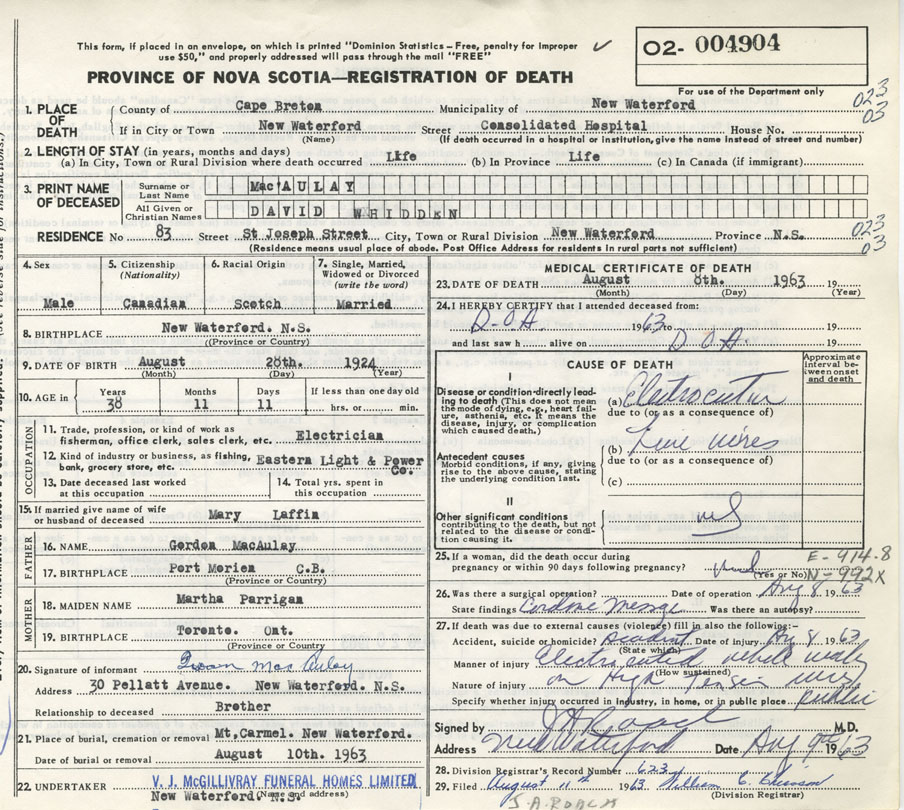 This form, if placed in an envelope, on which is printed "Dominion Statistics – Free, penalty for Improper
use $50," and properly addressed will pass through the mail "FREE"
✓
O2- 004904
For use of the Department only
PROVINCE OF NOVA SCOTIA—REGISTRATION OF DEATH
023
03
1. PLACE OF DEATH
County of Cape Breton Municipality of New Waterford
If in City or Town New Waterford Street Consolidated Hospital House No.
(Name) (If death occurred in a hospital or institution, give the name instead of street and number)
2. LENGTH OF STAY (in years, months and days)
(a) In City, Town or Rural Division where death occurred Life (b) In Province Life (c) In Canada (if immigrant)
3. PRINT NAME OF DECEASED
Surname or Last Name MacAULAY
All Given or Christian Names DAVID WHIDDEN
RESIDENCE No 83 Street St Joseph Street City, Town or Rural Division New Waterford Province N.S.
(Residence means usual place of abode. Post Office Address for residents in rural parts not sufficient)
023
03
4. Sex Male
5. Citizenship (Nationality) Canadian
6. Racial Origin Scotch
7. Single, Married, Widowed or Divorced (write the word) Married
8. BIRTHPLACE New Waterford. N.S.
(Province or Country)
9. DATE OF BIRTH August 28th. 1924
(Month) (Day) (Year)
10. AGE in Years 38 Months 11 Days 11 If less than one day old hrs. or min.
OCCUPATION
11. Trade, profession, or kind of work as
fisherman, office clerk, sales clerk, etc. Electrician
12. Kind of industry or business, as fishing,
bank, grocery store, etc. Eastern Light & Power Co.
13. Date deceased last worked
at this occupation
14. Total yrs. spent in
this occupation
15. If married give name of wife
or husband of deceased Mary Laffin
FATHER
16. NAME Gordon MacAulay
17. BIRTHPLACE Port Morien C.B.
(Province or Country)
MOTHER
18. MAIDEN NAME Martha Parrigan
19. BIRTHPLACE Toronto. Ont.
(Province or Country)
20. Signature of informant MacAulay
Address 30 Pellatt Avenue. New Waterford. N.S.
Relationship to deceased Brother
21. Place of burial, cremation or removal Mt, Carmel. New Waterford.
Date of burial or removal August 10th. 1963
22. UNDERTAKER V. J. McGILLIVRAY FUNERAL HOMES LIMITED
New Waterford, N.S.
(Name and address)
MEDICAL CERTIFICATE OF DEATH
23. DATE OF DEATH August 8th. 1963 19
(Month) (Day) (Year)
24. I HEREBY CERTIFY that I attended deceased from:
D.O.A. 1963 to 19
and last saw h alive on D O A. 19
CAUSE OF DEATH
Approximate interval between onset and death
I
Disease or condition directly leading
to death (This does not mean
the mode of dying, e.g., heart failure,
asthenia, etc. It means the
disease, injury, or complication
which caused death.)
(a) Electrocution
due to (or as a consequence of)
(b) Live wires
due to (or as a consequence of)
(c)
Antecedent causes
Morbid conditions, if any, giving
rise to the above cause, stating
the underlying condition last.
II
Other significant conditions
contributing to the death, but not
related to the disease or condition
causing it.
25. If a woman, did the death occur during
pregnancy or within 90 days following pregnancy?
(Yes or No)
E-914-8
N-992X
26. Was there a surgical operation? Date of operation Aug 8 1963
State findings Was there an autopsy?
27. If death was due to external causes (violence) fill in also the following:–
Accident, suicide or homicide? Accident Date of injury Aug 8 1963
(State which)
Manner of injury Electrocuted while
(How sustained)
Nature of injury on High Tension wires
Specify whether injury occurred in Industry, in home, or in public place Public
Signed by J A Roach M.D.
Address New Waterford Date Aug 9th 1963
28. Division Registrar's Record Number 623
29. Filed August 11th 1963 William C.
(Division Registrar)
J.A.ROACH